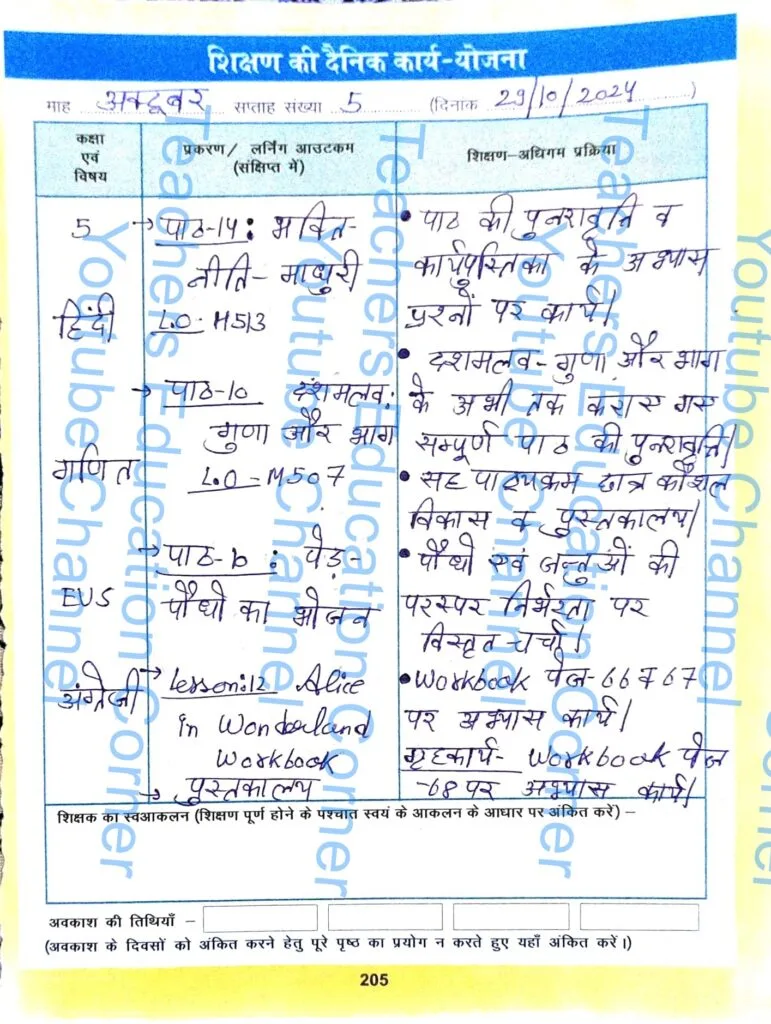 शिक्षण की दैनिक कार्य-योजना
माह अक्टूबर सप्ताह संख्या 5 (दिनाक 29/10/2024)
कक्षा एवं विषय
प्रकरण/ लर्निंग आउटकम (संक्षिप्त में)
शिक्षण-अधिगम प्रक्रिया
5
हिंदी
→ पाठ-14: भक्ति-
नीति- माधुरी
L.O- H513
• पाठ की पुनरावृत्ति व
कार्यपुस्तिका के अभ्यास
प्रश्नों पर कार्य।
गणित
→ पाठ-10 दशमलव:
गुणा और भाग
L.O -M507
• दशमलव- गुणा और भाग
के अभी तक कराए गए
सम्पूर्ण पाठ की पुनरावृत्ति।
• सह पाठ्यक्रम छात्र कौशल
विकास व पुस्तकालय।
EVS
→ पाठ- : पेड़-
पौधो का भोजन
• पौधो एवं जन्तुओं की
परस्पर निर्भरता पर
विस्तृत चर्चा।
अंग्रेजी
→ Lesson:12 Alice
in Wonderland
Workbook
→ पुस्तकालय
• Workbook पेज-66 व 67
पर अभ्यास कार्य।
गृहकार्य- Workbook पेज
-68 पर अभ्यास कार्य।
शिक्षक का स्वआकलन (शिक्षण पूर्ण होने के पश्चात स्वयं के आकलन के आधार पर अंकित करें) –
अवकाश की तिथियाँ –
(अवकाश के दिवसों को अंकित करने हेतु पूरे पृष्ठ का प्रयोग न करते हुए यहाँ अंकित करें।)
205
Teachers Education Corner
Youtube Channel